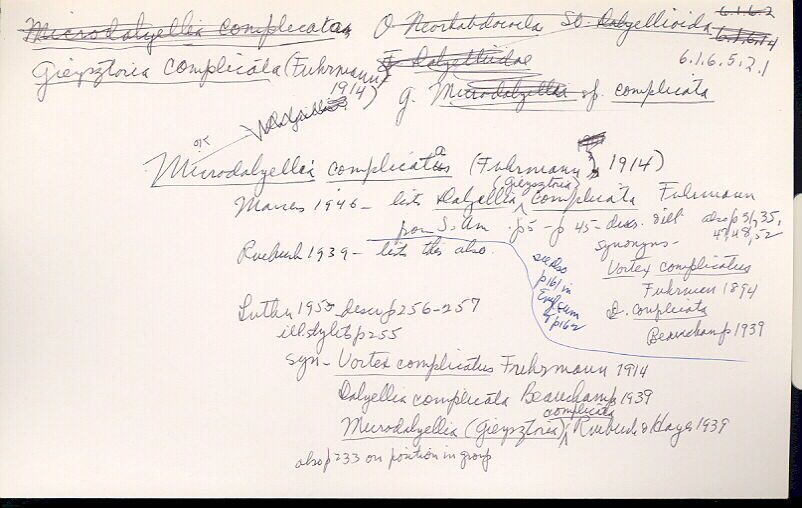 Microdalyellia complicata O Neorhabdocoela So. Dalyellioida 6.1.6.2
6.1.6.14
Gieysztoria complicata (Fuhrmann 1914) F Dalyelliidae 6.1.6.5.2.1
g. Microdalyellia sp. complicata
OK Vdalyellia
Microdalyellia complicatus (Fuhrmann, 1914)
Marcus 1946 - lists Dalyellia (Gieysztoria) complicata Fuhrmann
from S. Am. p5 - p 45 - discus. & ill also p 31, 35,
47, 48, 52
Ruebush 1939 - lists this also.
synonyms -
Vortex complicatus
Fuhrmen 1894
D. complicata
Beauchamp 1939
see also
p161 in
& p162
Luther 1955 descr p256-257
ill stylet p255
syn - Vortex complicatus Fuhrmann 1914
Dalyellia complicata Beauchamp 1939
Microdalyellia (Gieysztoria) complicata Ruebush & Hayes 1939
also p 233 on position in group